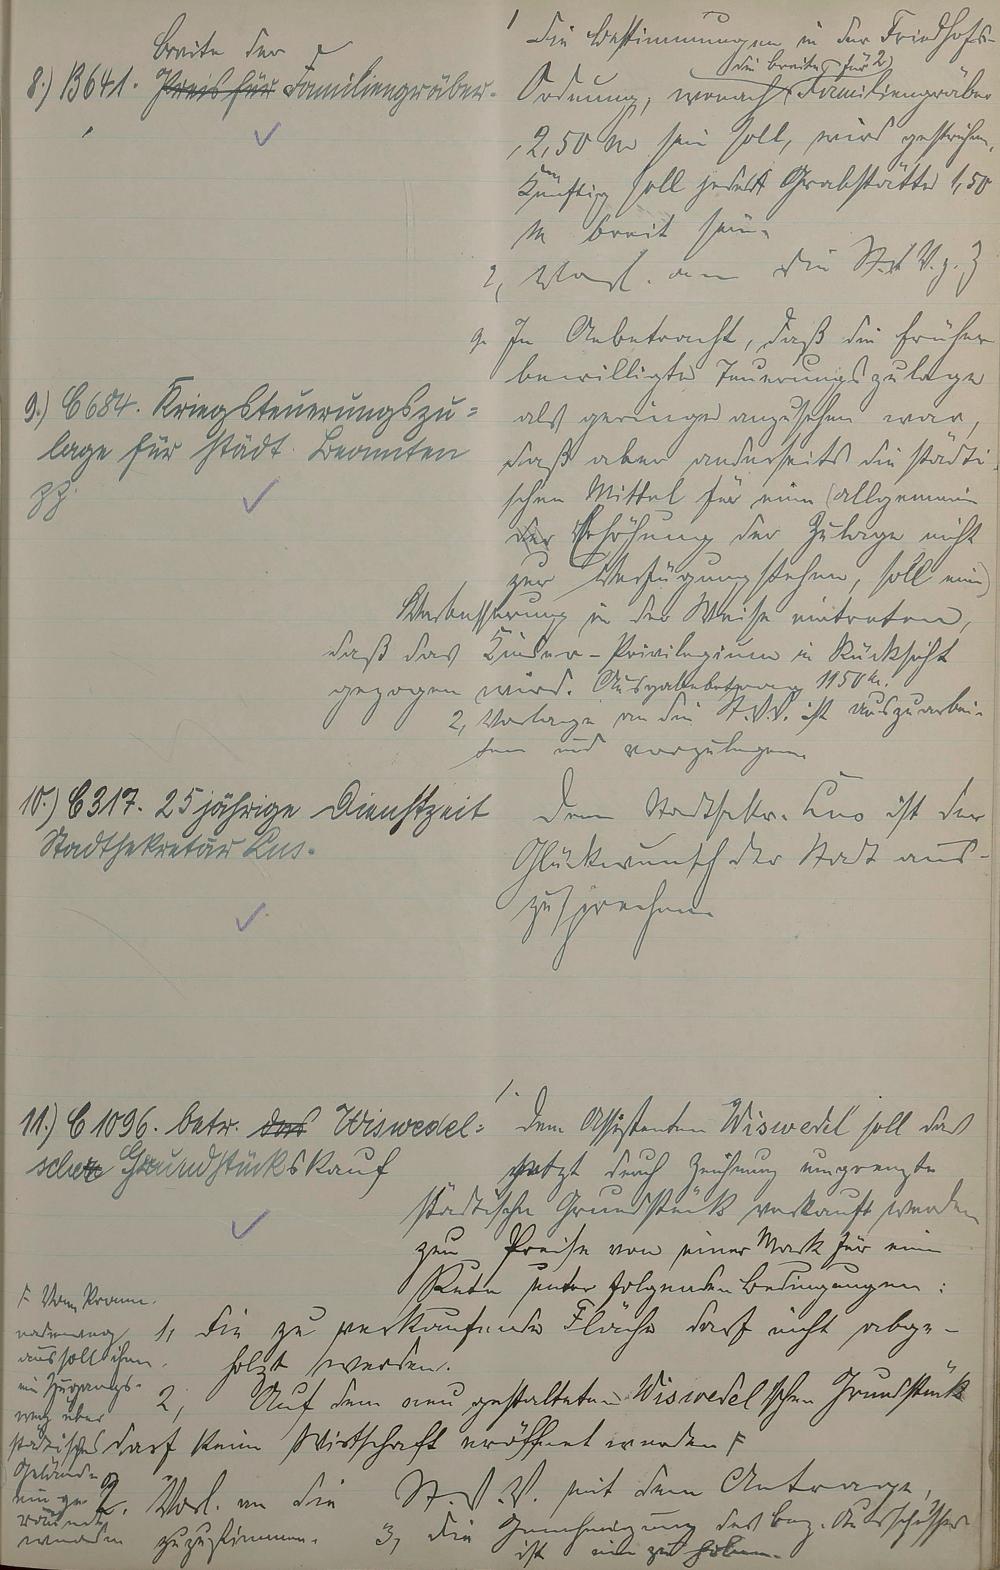 8.) B641. Preis für Familiengräber.
Breite der
1 Die Bestimmungen in der Friedhofs-
Ordnung, wonach Familiengräber
die Breite für 2
2,50 m sein soll, wird gestrichen,
Künftig soll jede Grabstätte 1,50
m breit sein.
2, Vorl. an die St. V. z. Z
9.) C684. Kriegsteuerungszu=
lage für städt. Beamten
pp.
In Anbetracht, daß die früher
bewilligte Teuerungszulage
als geringe anzusehen war,
daß aber anderseits die städti-
schen Mittel für eine allgemein
der Erhöhung der Zulage nicht
zur Verfügung stehen, soll eine
Verbesserung in der Weise eintreten,
daß das Kinder-Privilegium in Rücksicht
gezogen wird. Ausgabebetrag 1150 M.
2, Vorlage an die St.V.V. ist auszuarbei-
ten und vorzulegen.
10.) C317. 25jährige Dienstzeit
Stadtsekretär Lus.
Dem Stadtsekr. Lus ist der
Glückwunsch der Stadt aus-
zusprechen.
11.) C1096. betr. das Wiswedel=
sche Grundstückskauf
1. Dem Assistenten Wiswedel soll das
jetzt durch Zeichnung umgrenzte
städtische Grundstück verkauft werden
zum Preise von einer Mark für eine
Rute unter folgenden Bedingungen:
1, die zu verkaufende Fläche darf nicht abge-
holzt werden.
2, Auf dem neu gestalteten Wiswedel'schen Grundstück
darf keine Wirtschaft eröffnet werden F
F Vom Prome-
nadenweg
aus soll ihm
ein Zugangs-
weg über
städtisches
Gelände
einge-
räumt
werden
2. Vorl. an die St.V.V. mit dem Antrage,
zuzustimmen. 3, die Genehmigung des Bez. Ausschusses
ist einzuholen.